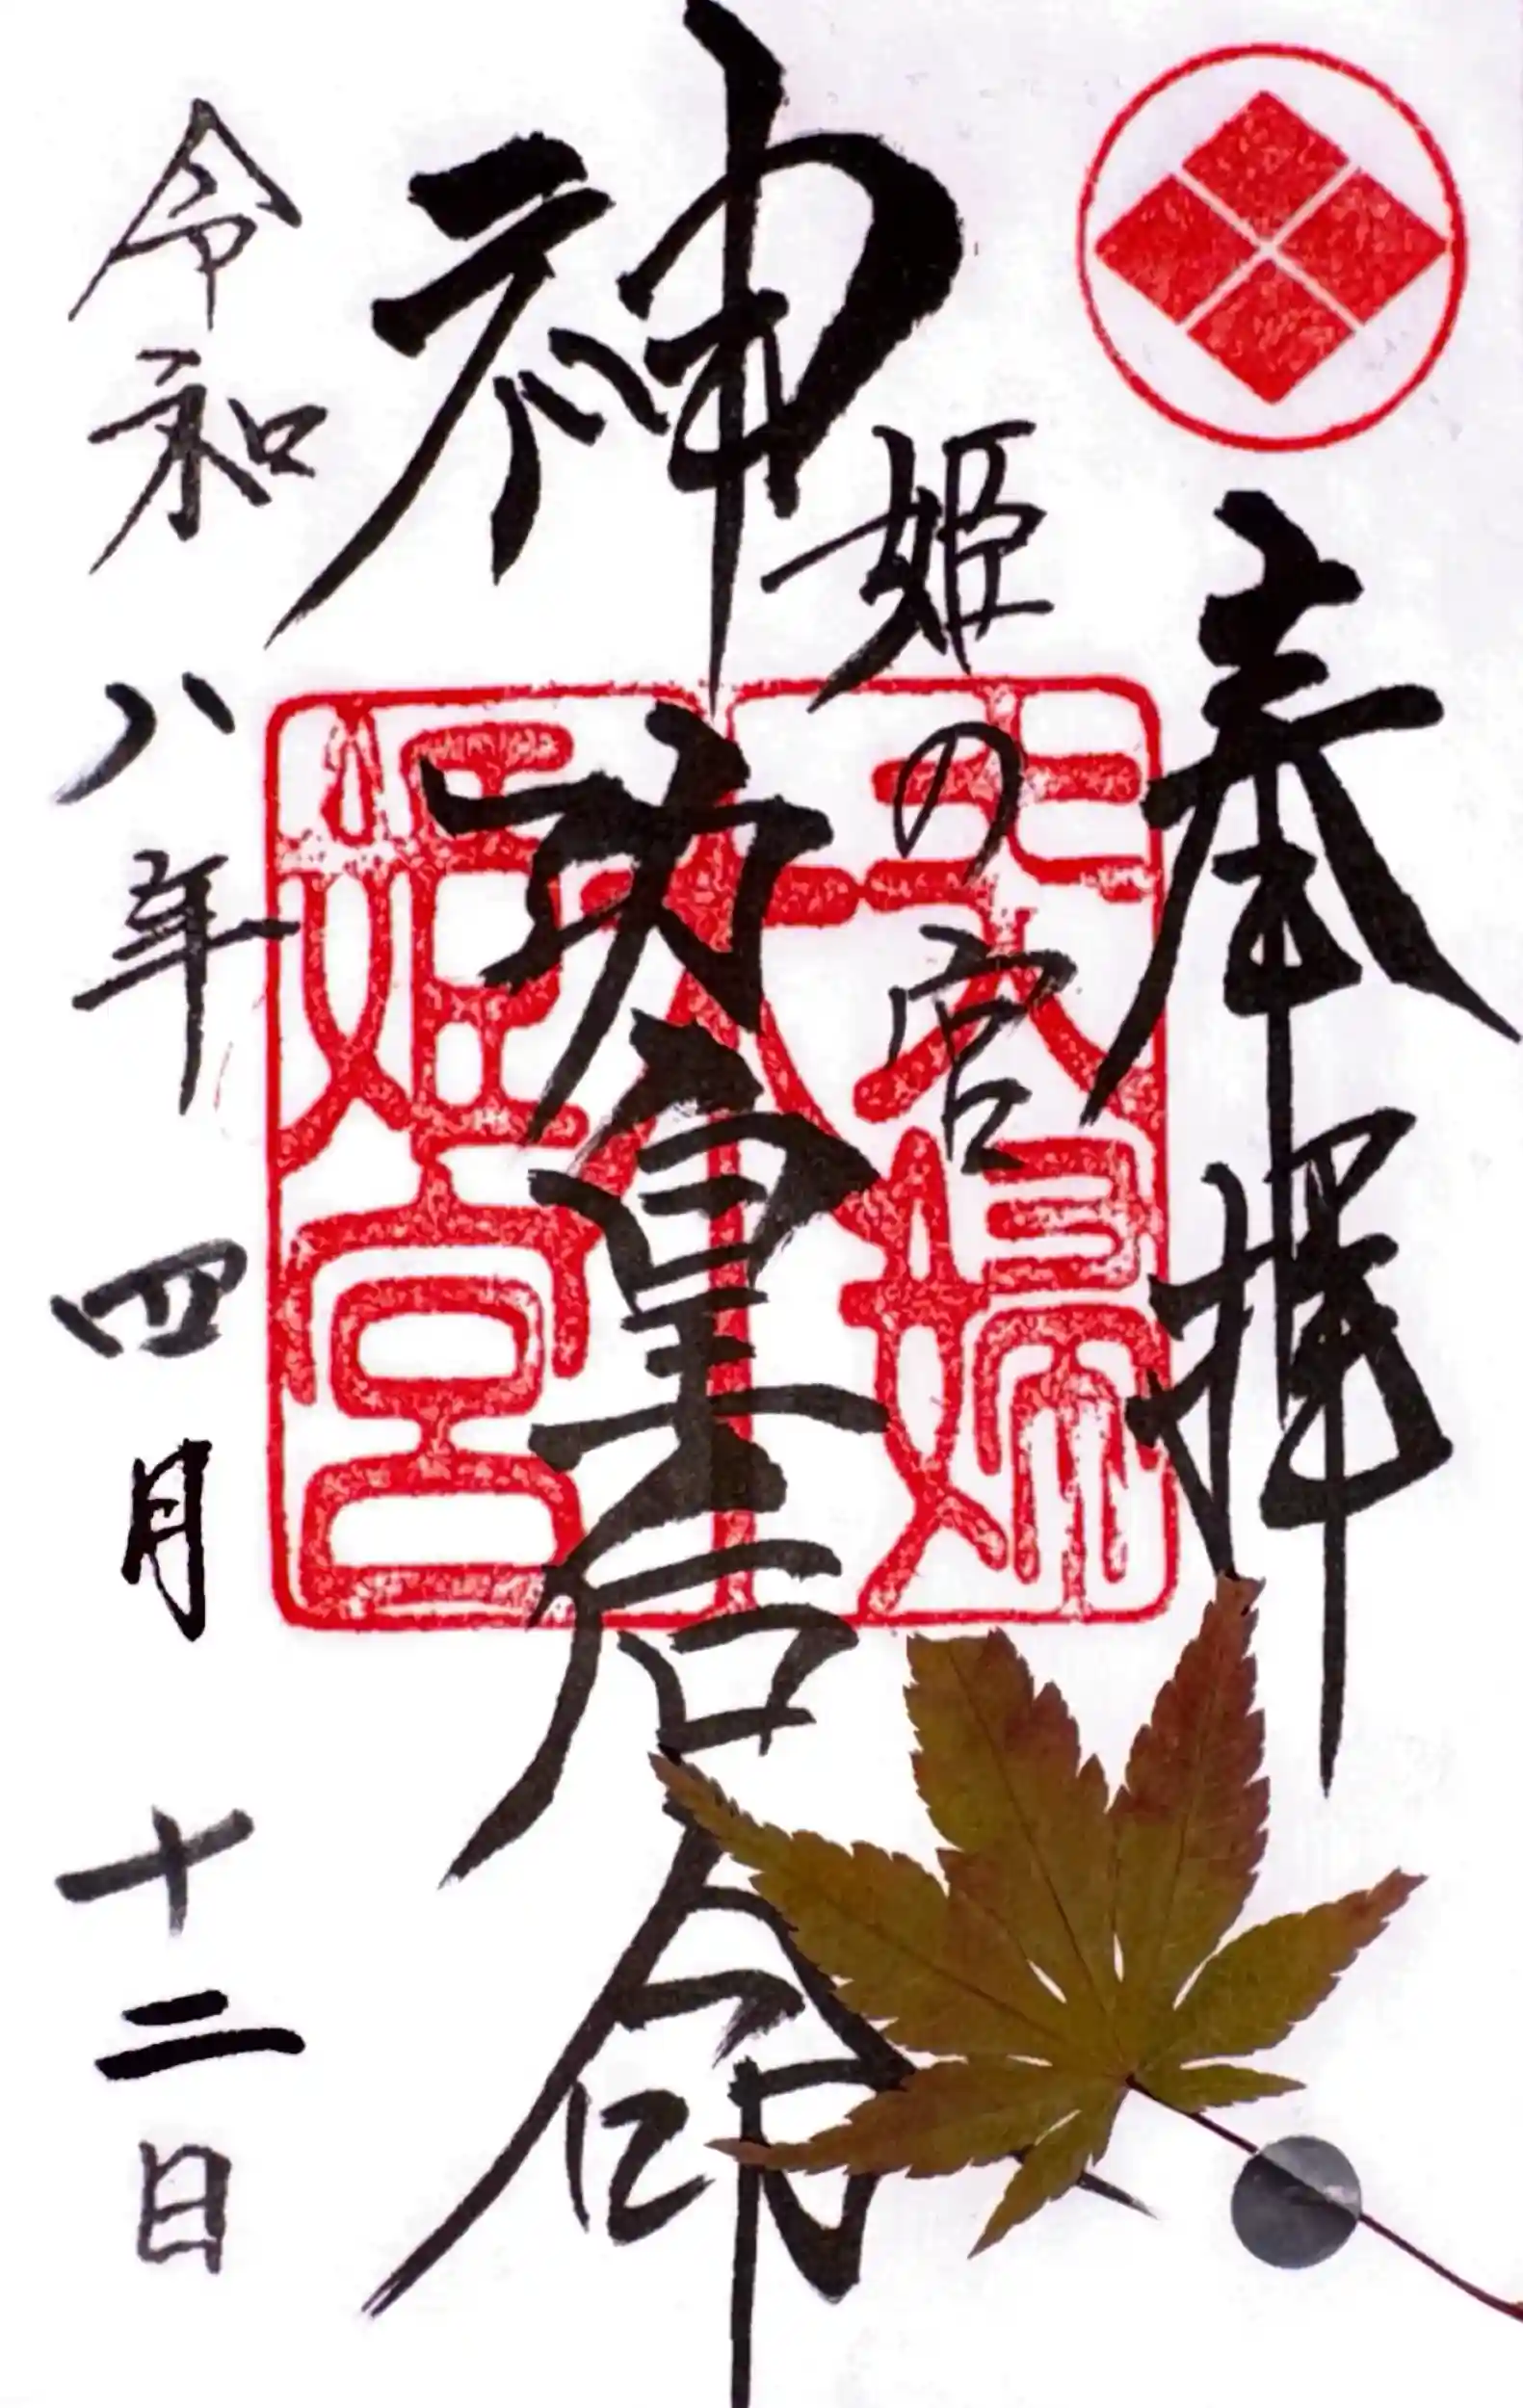 奉拝
姫の宮
神功皇后命
令和八年四月十二日
夫婦
木
姫宮